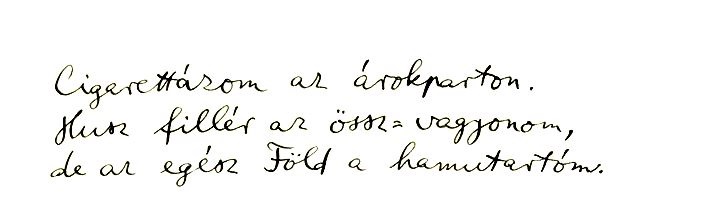 Cigarettázom az árokparton.
Husz fillér az össz=vagyonom,
de az egész Föld a hamutartóm.